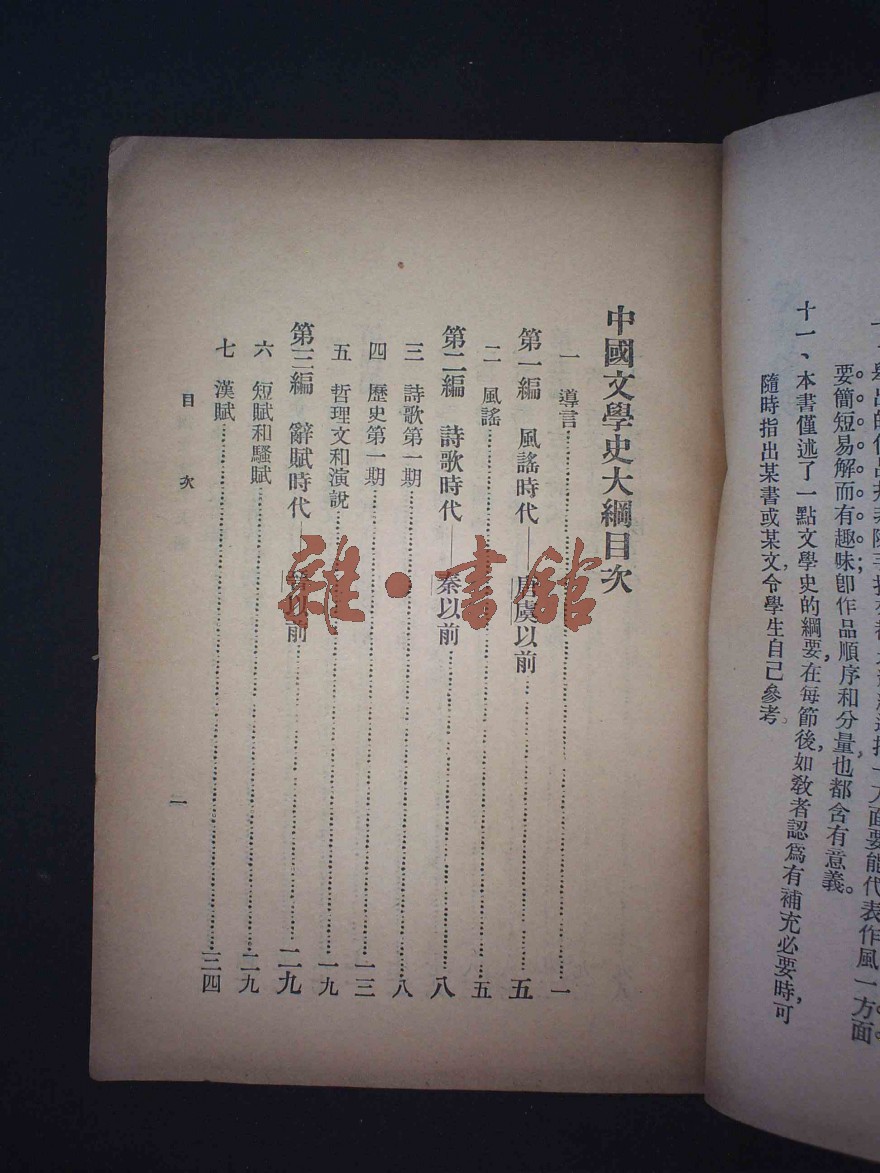 要簡短易解而有趣味;卽作品順序和分量,也都含有意義。
十一、本書僅述了一點文學史的綱要,在每節後,如敎者認爲有補充必要時,可
隨時指出某書或某文,令學生自己參考。
中國文學史大綱目次
一 導言……一
第一編 風謠時代——唐虞以前……五
二 風謠……五
第二編 詩歌時代——秦以前……八
三 詩歌第一期……八
四 歷史第一期……一三
五 哲理文和演說……一九
第三編 辭賦時代——晉以前……二九
六 短賦和騷賦……二九
七 漢賦……三四
目次
一
雜·書館